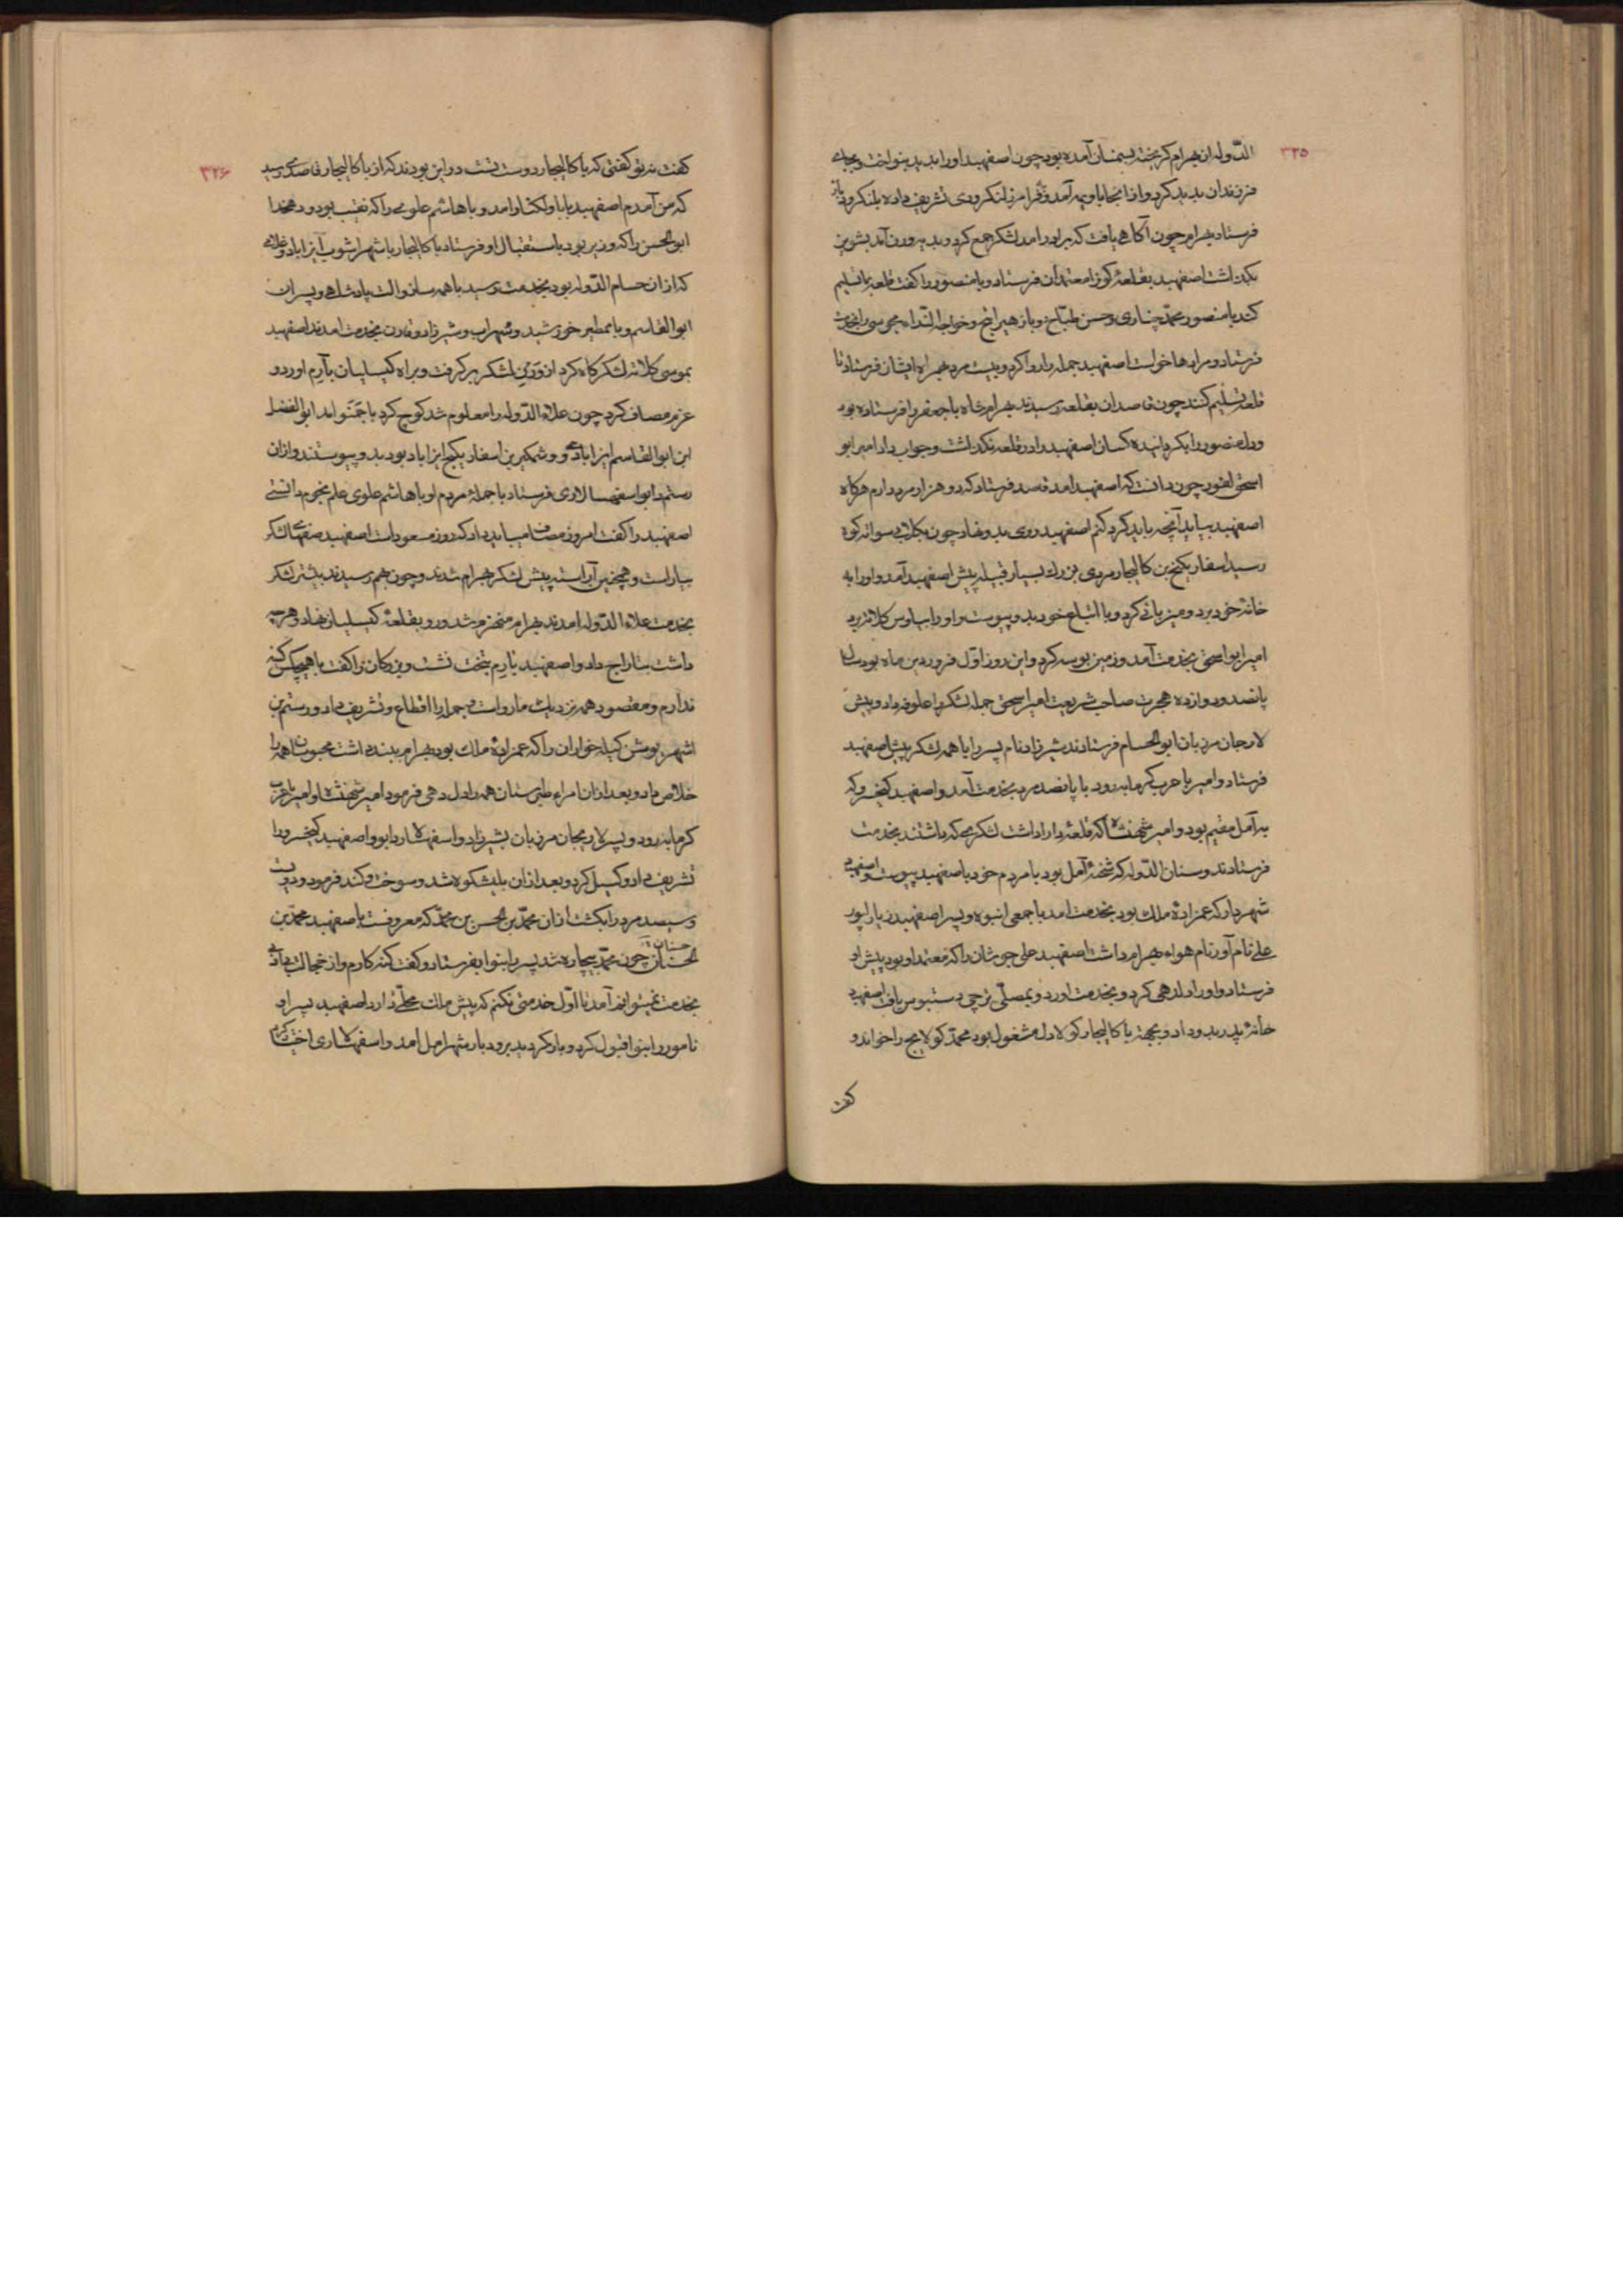 ۳۲۵
الدوله از بهرام گریخته بسمنان آمده بود چون اصفهبد او را بدید بنواخت و بجای
فرزندان بدید کرد و از آنجا باویمه آمد و فرامرز لنکرودی تشریف داده بلنکرود باز
فرستاد بهرام چون آگاهی یافت که برادر آمد لشکر جمع کرد و بدیه رودن آمد
بگذاشت اصفهبد بقلعهٔ کوزا معتمدان فرستاد و بامنصور را کفت قلعه بما تسلیم
کند بامنصور محمد چناری و حسن طباخ و باز هیرانج و خواجه را بخدمت
فرستاد و مرادها خواست اصفهبد جمله را روا کرد و بیست مرد همراه ایشان فرستاد تا
قلعه تسلیم کنند چون قاصدان بقلعه رسیدند بهرام شاه باجعفر را فرستاده بود
و دل منصور را بکردانیده کسان اصفهبد را در قلعه نکذاشت و جواب داد امیر ابو
اسحق لفور چون دانست که اصفهبد آمد قاصد فرستاد که دو هزار مرد دارم هرکاه
اصفهبد بیاید آنچه باید کرد کنم اصفهبد روی بدو نهاد چون بکلابه سواته کوه
رسید اسفار یکیج بن کالیجار مردی بزرک بسیار قبیله پیش اصفهبد آمد و او را به
خانهٔ خود برد و میزبانی کرد و با اتباع خود بدو پیوست و او را کلاته برد
امیر ابو اسحق بخدمت آمد و زمین بوسه کرد و این روز اول فروردین ماه بود سال
پانصد و دوازده هجرت صاحب شریعت امیر اسحق جمله لشکر را علوفه داد و پیش
لارجان مرزبان ابو الحسام فرستادند شیرزاد نام پسر را با همه لشکر پیش اصفهبد
فرستاد و امیر باحرب کرمابه رود با پانصد مرد بخدمت آمد و اصفهبد کیخسرو که
به آمل مقیم بود و امیر شهنشاه که قلعهٔ دارا داشت لشکر هم که داشتند بخدمت
فرستادند و سنان الدوله که شحنهٔ آمل بود با مردم خود باصفهبد پیوست و اصفهبد
شهردار که عمزادهٔ ملک بود بخدمت آمد با جمعی انبوه و پسر اصفهبد زیار لپور
علی نام آور نام هواء بهرام داشت اصفهبد علی را که معتمد او بود پیش او
فرستاد و او را دلدهی کرد و بخدمت آورد و بمصلی ترجی دستبوس یافت اصفهبد
خانهٔ پدر بدو داد و بجهت باکالیجار کولا دل مشغول بود محمد کولایج را خواند و
کفت
۳۲۶
کفت نه تو کفتی که باکالیجار دوست تست در این بودند که از باکالیجار قاصدی رسید
که من آمدم اصفهبد باباولکنار آمد و باهاشم علوی را که نقیب بود و دهخدا
ابو الحسن را که وزیر بود باستقبال او فرستاد باکالیجار با شهرآشوب ایزاباد و
که از آن حسام الدوله بود بخدمت رسید با همه ساز و آلت پادشاهی و پسران
ابو القاسم و بامطیر خورشید و سهراب و شیرزاد و قارن بخدمت آمدند اصفهبد
بموسی کلاته لشکرکاه کرد از وزین لشکر برکرفت و براه کیسلیان بآرم آورد و
عزم مصاف کرد چون علاء الدوله را معلوم شد کوچ کرد با جمنو آمد ابو الفضل
ابن ابو القاسم ایزابادی و وشمکیر بن اسفار یکیج ایزاباد بود بدو پیوستند و از آن
رستم دابو اسفهسالاری فرستاد با جملهٔ مردم او باهاشم علوی علم نجوم دانستی
اصفهبد را کفت امروز مصاف میباید داد که روز مسعود است اصفهبد صفهای لشکر
بیاراست و همچنین آراسته پیش لشکر بهرام شدند و چون بهم رسیدند بیشتر لشکر
بخدمت علاء الدوله آمدند بهرام منهزم شد و رو بقلعهٔ کیسلیان نهاد و هرچه
داشت بتاراج داد و اصفهبد بآرم بتخت نشست و بزرکان را کفت با هیچکس کینه
ندارم و مقصود همه نزدیک ما رواست و جمله را اقطاع و تشریف داد و رستم بن
شهریوش کیله خواران را که عمزادهٔ ملک بود بهرام ببند داشت محبوسان همه را
خلاص داد و بعد از آن امراء طبرستان همه را دل دهی فرمود امیر شهنشاه و امیر باحرب
کرمابه رود و پسر لاریجان مرزبان شیرزاد و اسفهسلار دابو و اصفهبد کیخسرو را
تشریف داد و کسیل کرد و بعد از آن بلپشکوه شد و سوخت و کند فرمود و دویست
و سیصد مرد را بکشت از آن محمد بن الحسن بن محمد که معروفست باصفهبد محمد بن
الحسنان چون محمد بیچاره شد پسر را بنوا بفرستاد و کفت کنه کارم و از خجالت بی ادبی
بخدمت نمیتوانم آمد تا اول خدمتی نکنم که پیش ملک محلی دارد اصفهبد پسر او
نامور را بنوا قبول کرد و باز کردید برودبار شهر آمل آمد و اسفهسلاری